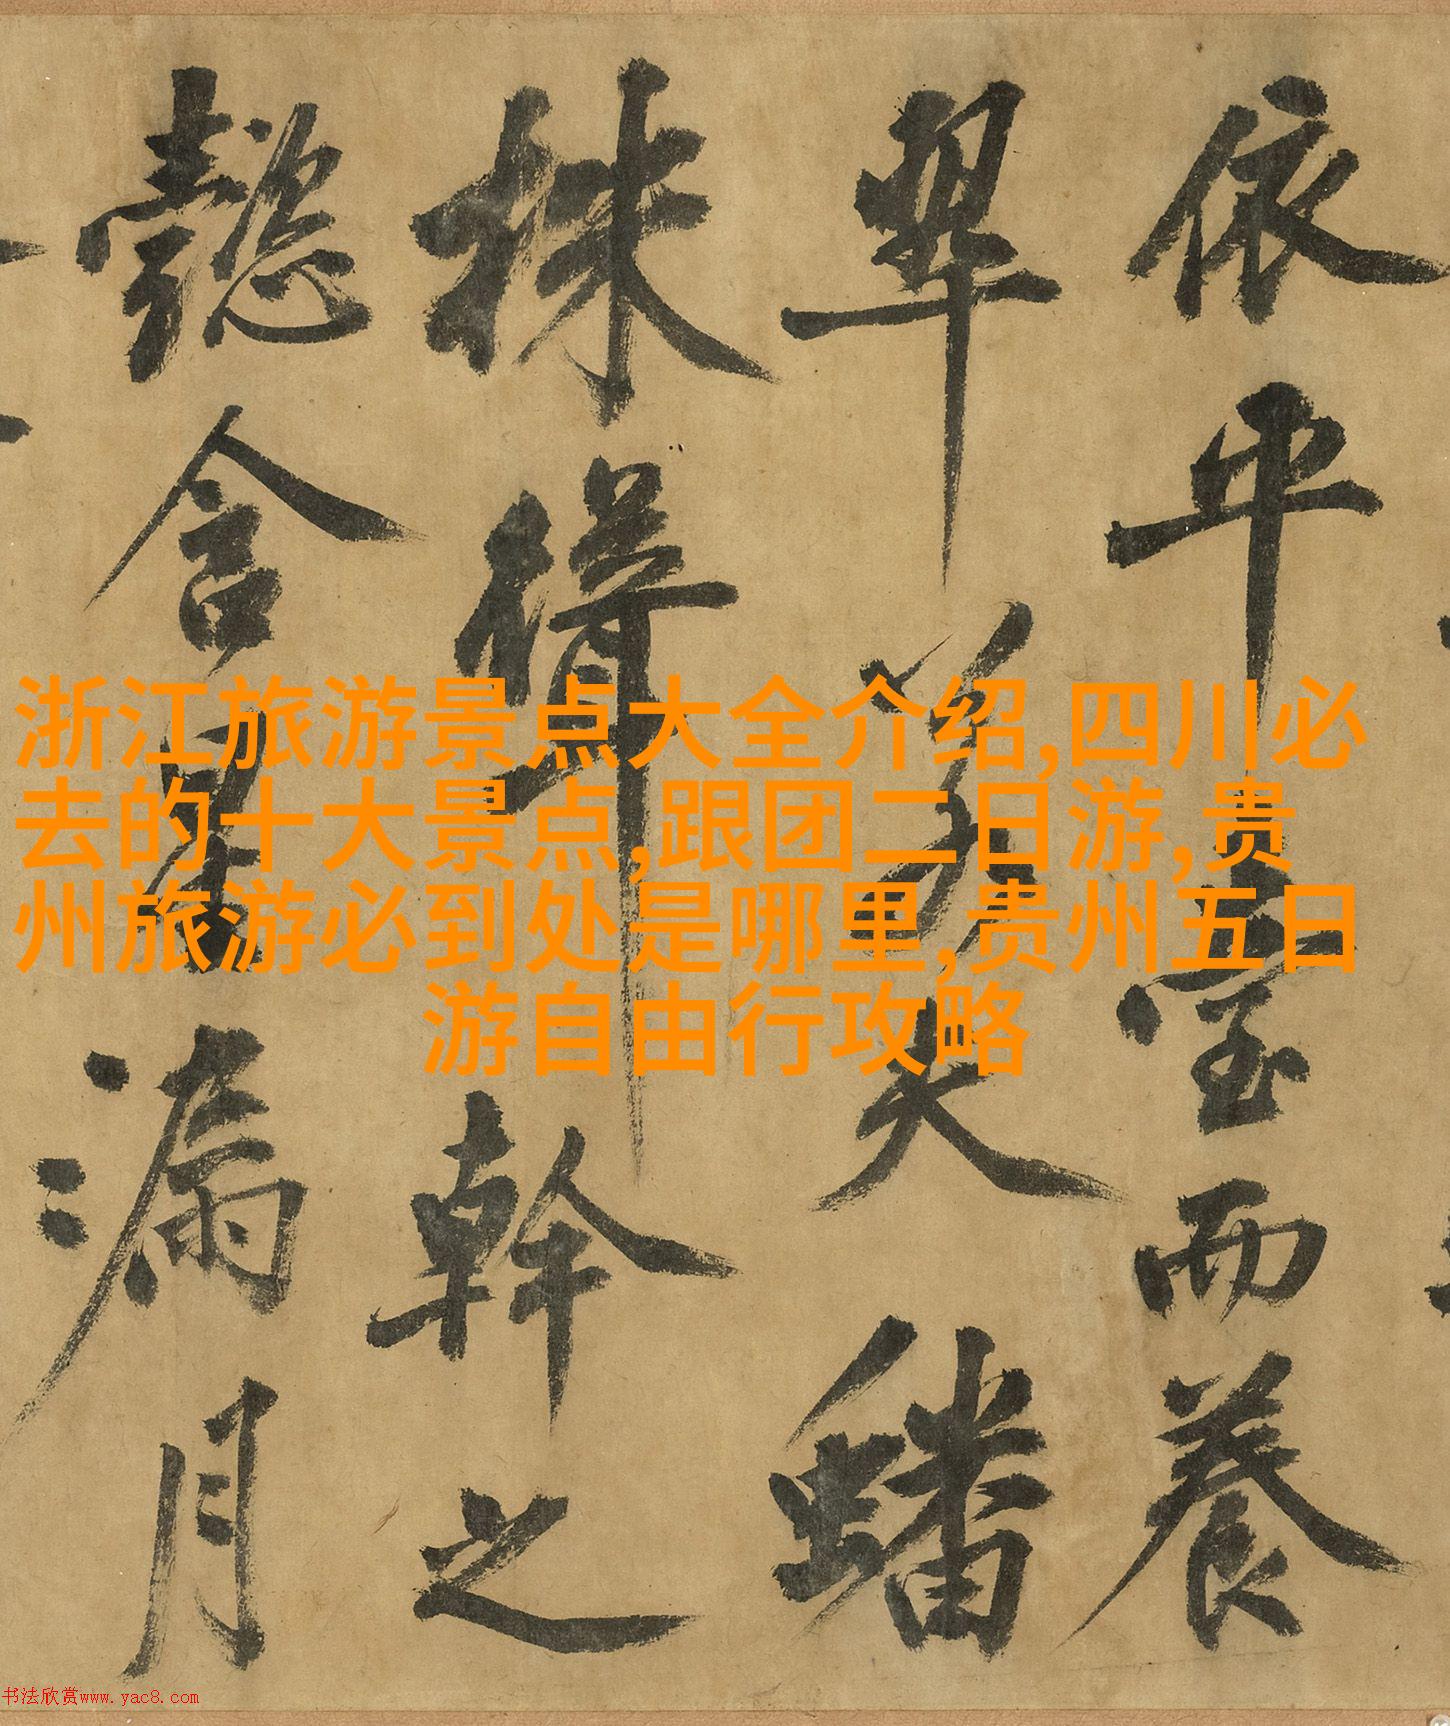 浙江旅游景点大全介绍,四川必
去的十大景点,跟团二日游,贵
州旅游必到处是哪里,贵州五日
游自由行攻略
依平臺而養
翠夭蟠
株幹之
含星漏月
书法欣赏www.yac8.com